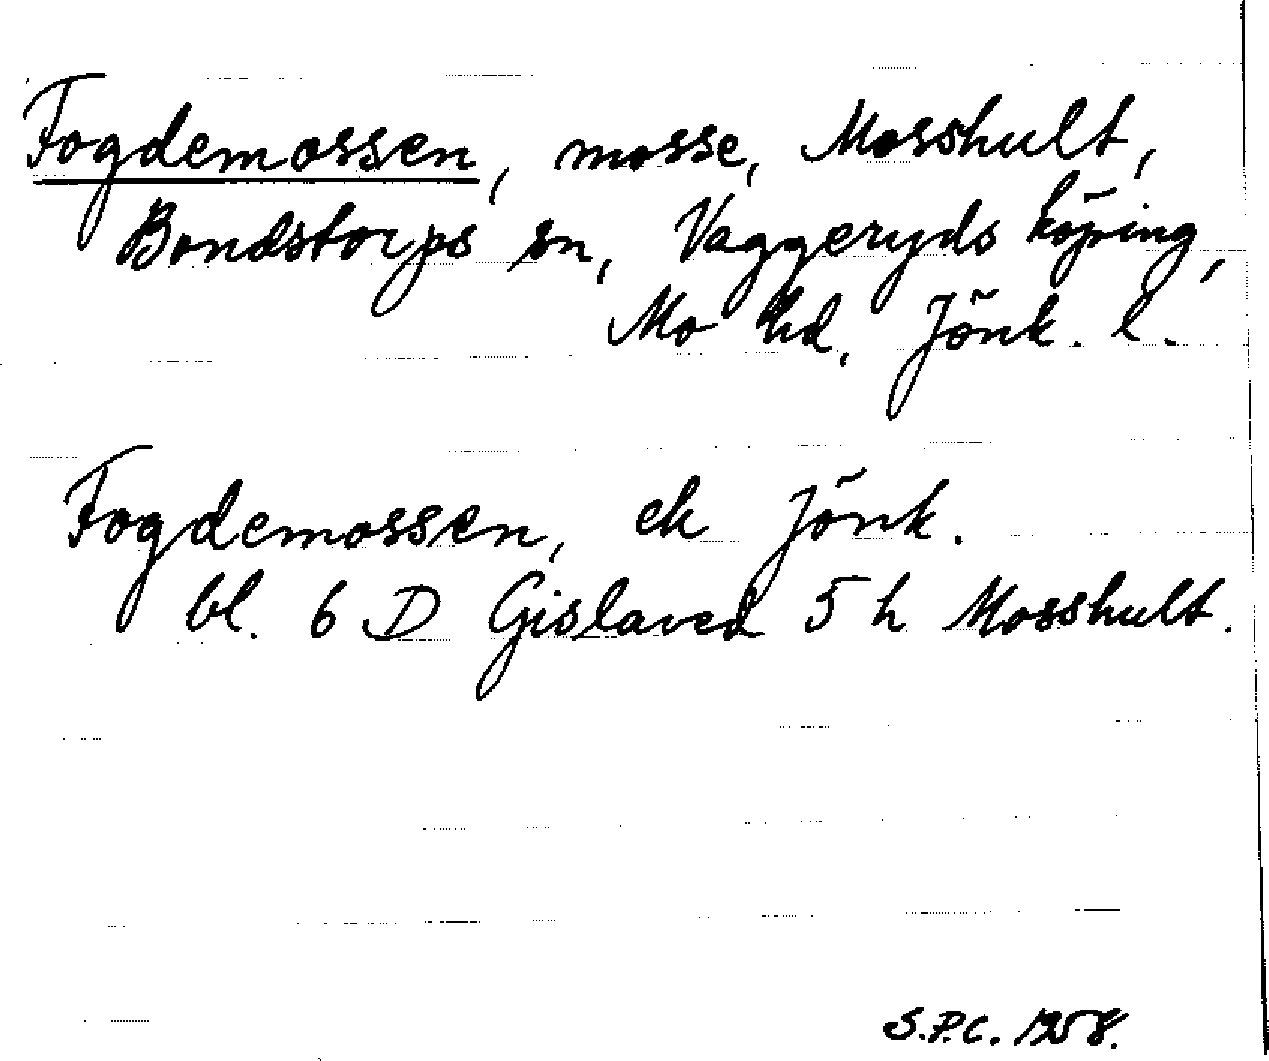 Fogdemossen, mosse, Mosshult,
Bondstorps sn, Vaggeryds köping,
Mo hd, Jönk. l.
Fogdemossen, ek Jönk.
bl. 6 D Gislaved 5 h Mosshult.
S.P.C. 1958.